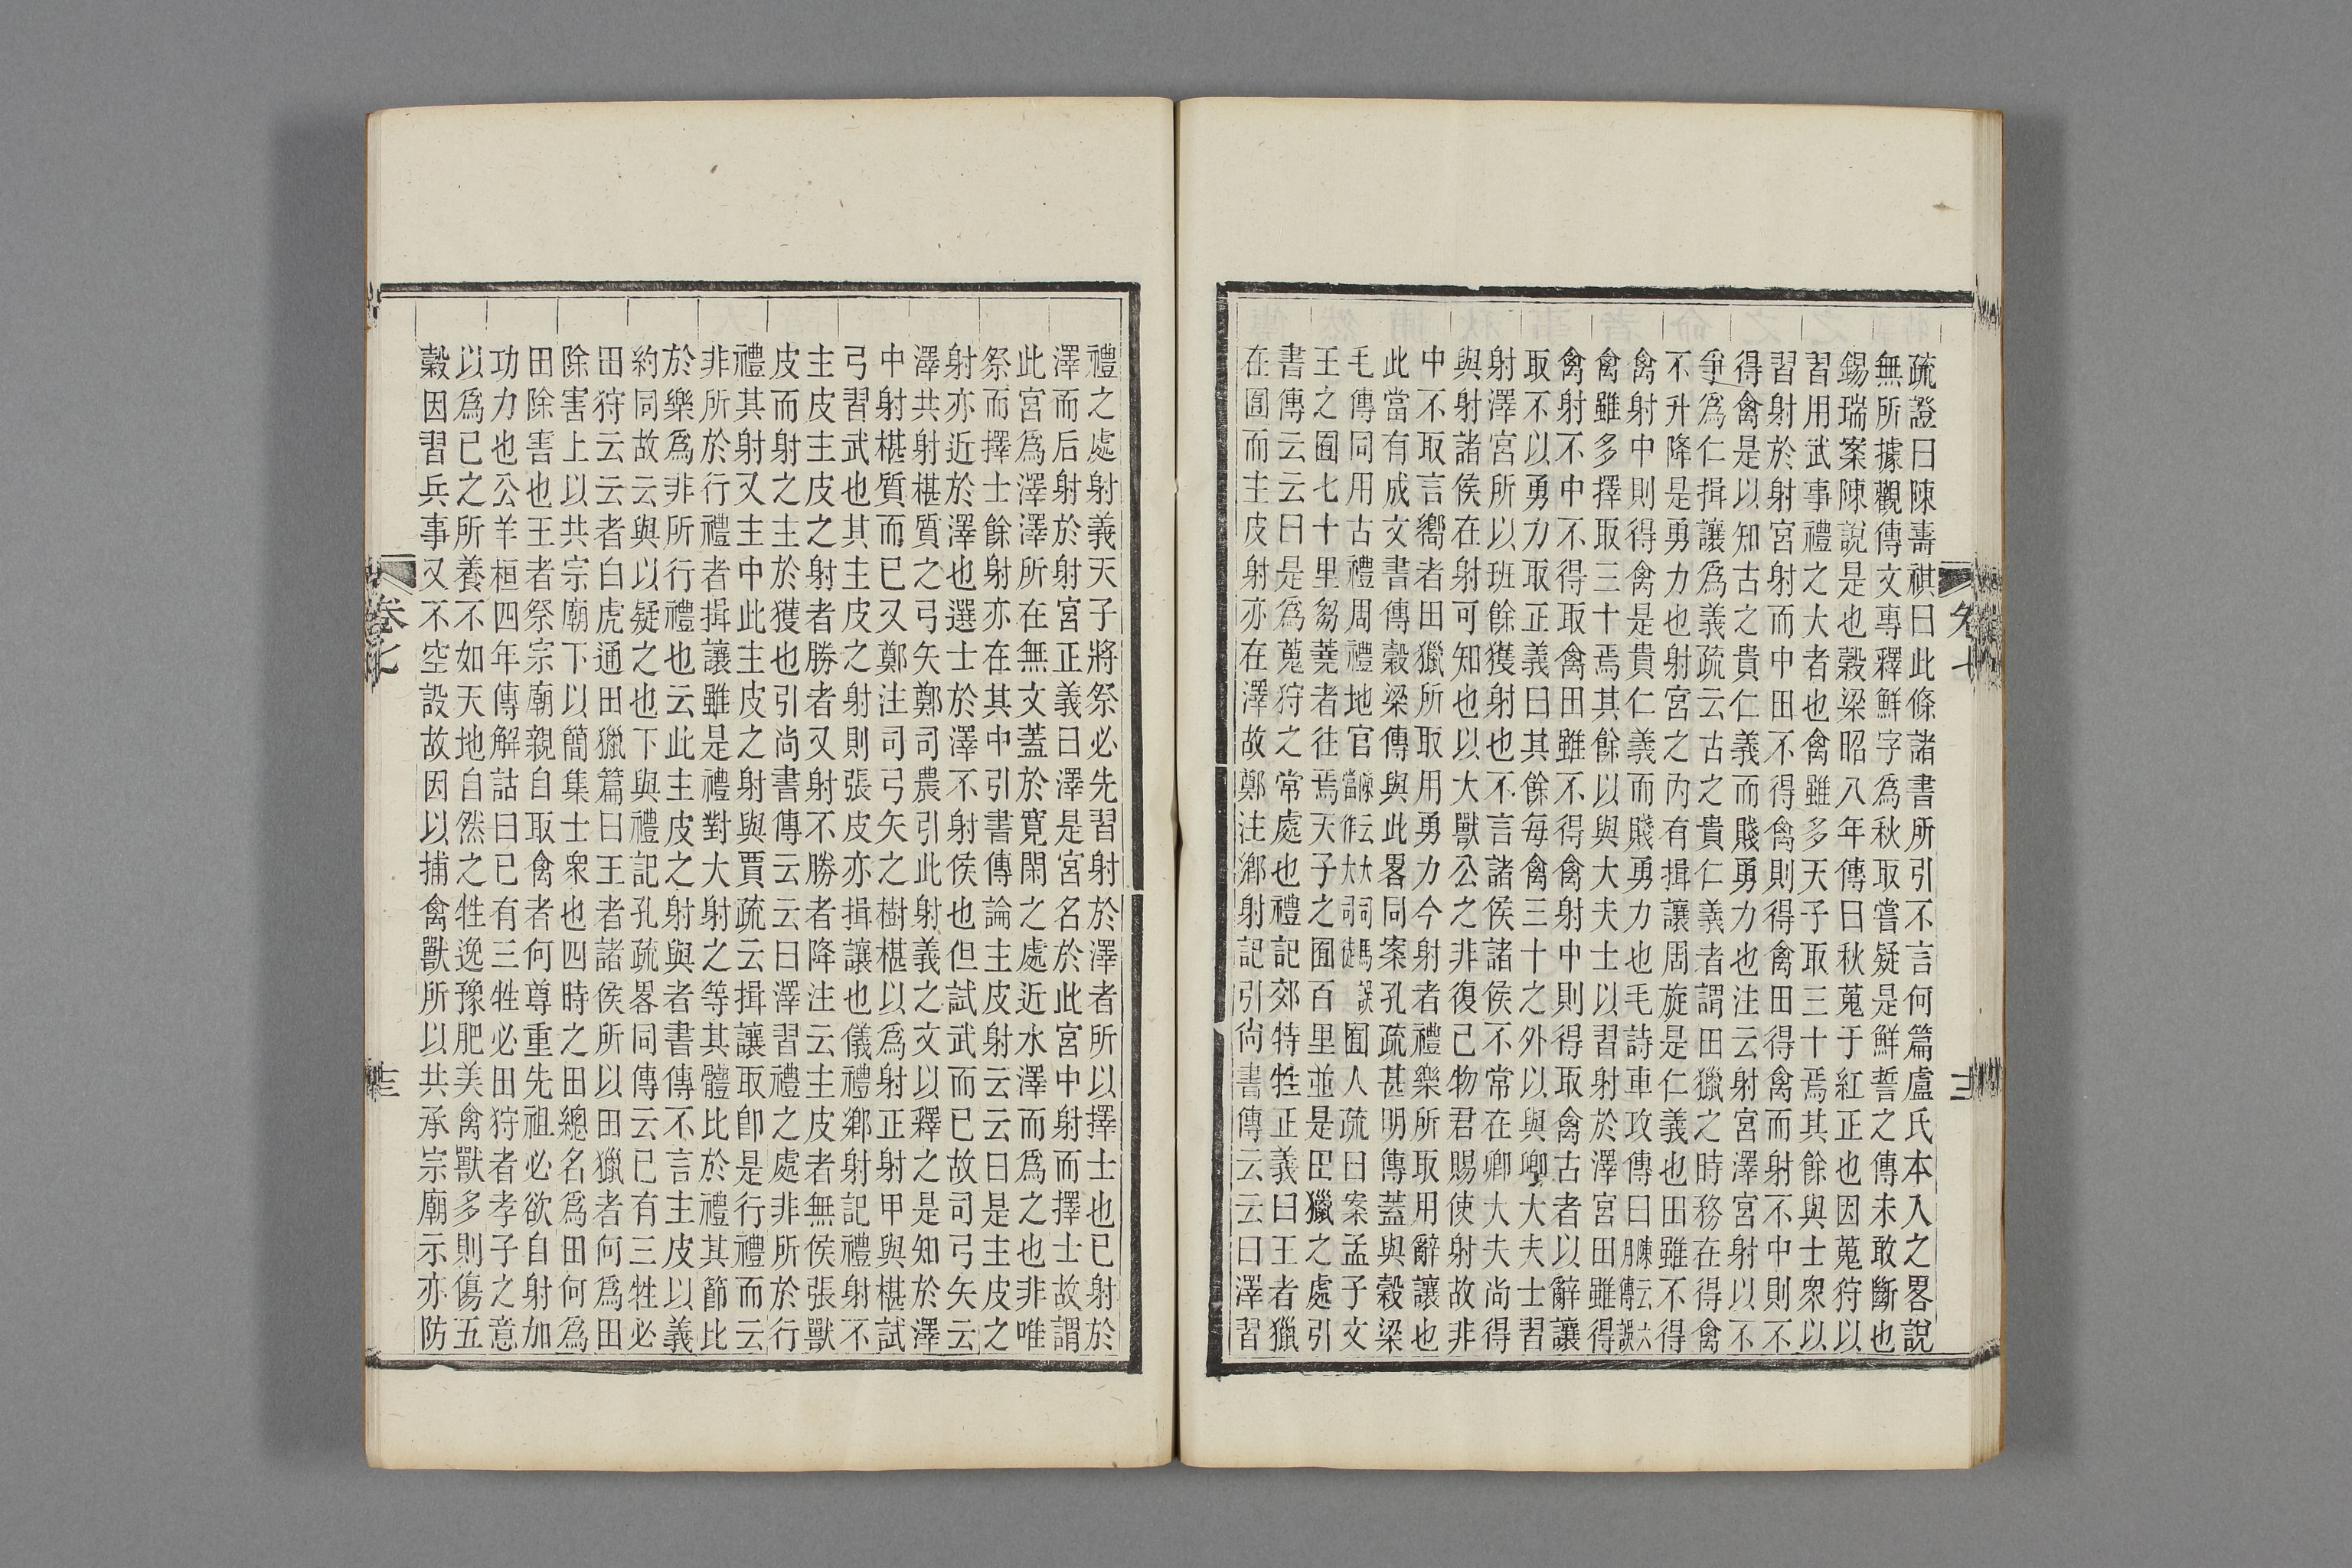 疏證曰陳壽祺曰此條諸書所引不言何篇盧氏本入之畧說
無所據觀傳文專釋鮮字爲秋取嘗疑是鮮誓之傳未敢斷也
錫瑞案陳說是也穀梁昭八年傳曰秋蒐于紅正也因蒐狩以
習用武事禮之大者也禽雖多天子取三十焉其餘與士衆以
習射於射宮射而中田不得禽則得禽田得禽而射不中則不
得禽是以知古之貴仁義而賤勇力也注云射宮澤宮射以不
爭爲仁揖讓爲義疏云古之貴仁義者謂田獵之時務在得禽
不升降是勇力也射宮之內有揖讓周旋是仁義也田雖不得
禽射中則得禽是貴仁義而賤勇力也毛詩車攻傳曰陳云六月傳誤
禽雖多擇取三十焉其餘以與大夫士以習射於澤宮田雖得
禽射不中不得取禽田雖不得禽射中則得取禽古者以辭讓
取不以勇力取正義曰其餘每禽三十之外以與卿大夫士習
射澤宮所以班餘獲射也不言諸侯諸侯不常在卿大夫尚得
與射諸侯在射可知也以大獸公之非復己物君賜使射故非
中不取言嚮者田獵所取用勇力今射者禮樂所取用辭讓也
此當有成文書傳穀梁傳與此畧同案孔疏甚明傳蓋與穀梁
毛傳同用古禮周禮地官陳云大司馬誤當作大司徒囿人疏曰案孟子文
王之囿七十里芻蕘者往焉天子之囿百里並是田獵之處引
書傳云云曰是爲蒐狩之常處也禮記郊特牲正義曰王者獵
在囿而主皮射亦在澤故鄭注鄉射記引尚書傳云云曰澤習
禮之處射義天子將祭必先習射於澤者所以擇士也已射於
澤而后射於射宮正義曰澤是宮名於此宮中射而擇士故謂
此宮爲澤澤所在無文蓋於寬閑之處近水澤而爲之也非唯
祭而擇士餘射亦在其中引書傳論主皮射云云曰是主皮之
射亦近於澤也選士於澤不射侯也但試武而已故司弓矢云
澤共射椹質之弓矢鄭司農引此射義之文以釋之是知於澤
中射椹質而已又鄭注司弓矢之樹椹以爲射正射甲與椹試
弓習武也其主皮之射則張皮亦揖讓也儀禮鄉射記禮射不
主皮主皮之射者勝者又射不勝者降注云主皮者無侯張獸
皮而射之主於獲也引尚書傳云云曰澤習禮之處非所於行
禮其射又主中此主皮之射與賈疏云揖讓取即是行禮而云
非所於行禮者揖讓雖是禮對大射之等其體比於禮其節比
於樂爲非所行禮也云此主皮之射與者書傳不言主皮以義
約同故云與以疑之也下與禮記孔疏畧同傳云已有三牲必
田狩云云者白虎通田獵篇曰王者諸侯所以田獵者何爲田
除害上以共宗廟下以簡集士衆也四時之田總名爲田何爲
田除害也王者祭宗廟親自取禽者何尊重先祖必欲自射加
功力也公羊桓四年傳解詁曰已有三牲必田狩者孝子之意
以爲已之所養不如天地自然之牲逸豫肥美禽獸多則傷五
穀因習兵事又不空設故因以捕禽獸所以共承宗廟示亦防